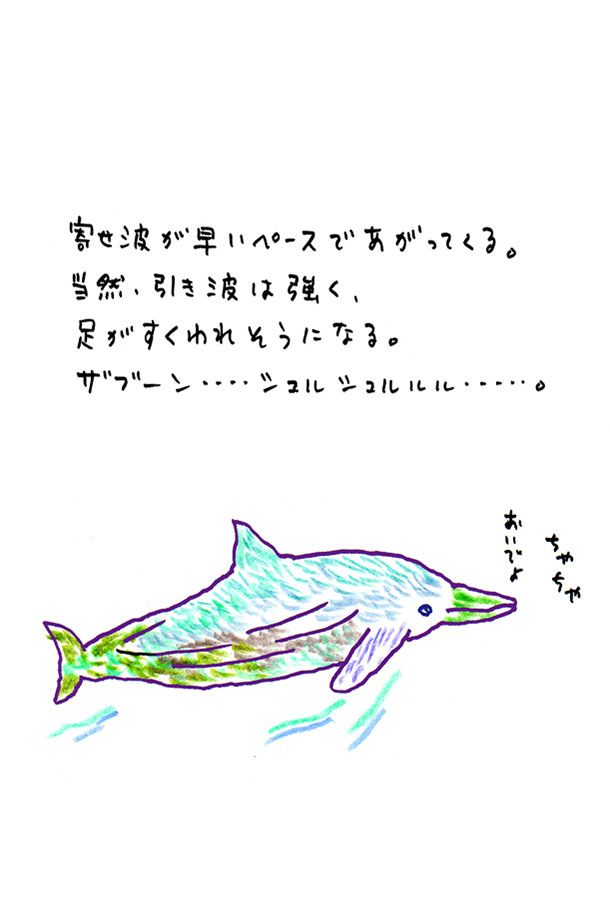 寄せ波が早いペースであがってくる。
当然、引き波は強く、
足がすくわれそうになる。
ザブーン・・・・シュルシュルルル・・・・・。
ちゃちゃ
おいでよ